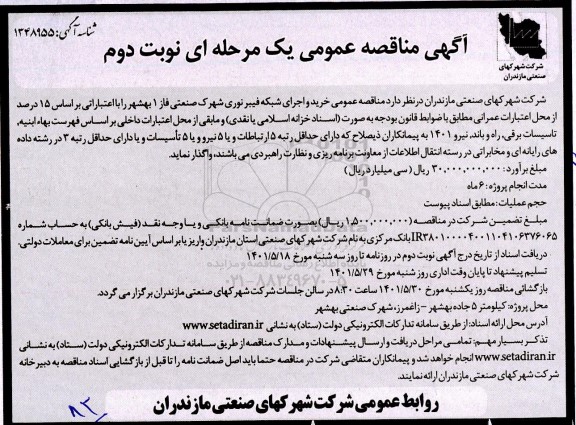 شناسه آگهی: ۱۳۴۸۹۵۵
شرکت شهرکهای
صنعتی مازندران
آگهی مناقصه عمومی یک مرحله ای نوبت دوم
شرکت شهرکهای صنعتی مازندران در نظر دارد مناقصه عمومی خرید و اجرای شبکه فیبر نوری شهرک صنعتی فاز ۱ بهشهر را با اعتباراتی بر اساس ۱۵ درصد
از محل اعتبارات عمرانی مطابق با ضوابط قانون بودجه به صورت (اسناد خزانه اسلامی یا نقدی) و مابقی از محل اعتبارات داخلی بر اساس فهرست بهاء ابنیه،
تاسیسات برقی، راه و باند، نیرو ۱۴۰۱ به پیمانکاران ذیصلاح که دارای حداقل رتبه ۵ ارتباطات و یا ۵ نیرو و یا ۵ تأسیسات و یا دارای حداقل رتبه ۳ در رشته داده
های رایانه ای و مخابراتی در رسته انتقال اطلاعات از معاونت برنامه ریزی و نظارت راهبردی می باشند، واگذار نماید.
مبلغ برآورد: ۳۰,۰۰۰,۰۰۰,۰۰۰ ریال (سی میلیارد ریال)
مدت انجام پروژه: ۶ ماه
حجم عملیات: مطابق اسناد پیوست
مبلغ تضمین شرکت در مناقصه (۱,۵۰۰,۰۰۰,۰۰۰ ریال) بصورت ضمانت نامه بانکی و یا وجه نقد (فیش بانکی) به حساب شماره
IR۳۸۰۱۰۰۰۰۴۰۰۱۱۰۴۱۰۶۳۷۶۰۶۵ بانک مرکزی به نام شرکت شهرکهای صنعتی استان مازندران واریز یا بر اساس آیین نامه تضمین برای معاملات دولتی.
دریافت اسناد از تاریخ درج آگهی نوبت دوم در روزنامه تا روز سه شنبه مورخ ۱۴۰۱/۵/۱۸
تسلیم پیشنهاد تا پایان وقت اداری روز شنبه مورخ ۱۴۰۱/۵/۲۹
بازگشائی مناقصه روز یکشنبه مورخ ۱۴۰۱/۵/۳۰ ساعت ۸:۳۰ در سالن جلسات شرکت شهرکهای صنعتی مازندران برگزار می گردد.
محل پروژه: کیلومتر ۵ جاده بهشهر - زاغمرز، شهرک صنعتی بهشهر
آدرس محل ارائه اسناد: از طریق سامانه تدارکات الکترونیکی دولت (ستاد) به نشانی www.setadiran.ir
تذکر بسیار مهم: تمامی مراحل دریافت و ارسال پیشنهادات و مدارک مناقصه از طریق سامانه تدارکات الکترونیکی دولت (ستاد) به نشانی
www.setadiran.ir انجام خواهد شد و پیمانکاران متقاضی شرکت در مناقصه حتما باید اصل ضمانت نامه را تا قبل از بازگشایی اسناد مناقصه به دبیرخانه
شرکت شهرکهای صنعتی مازندران ارائه نمایند.
روابط عمومی شرکت شهرکهای صنعتی مازندران
۸۳